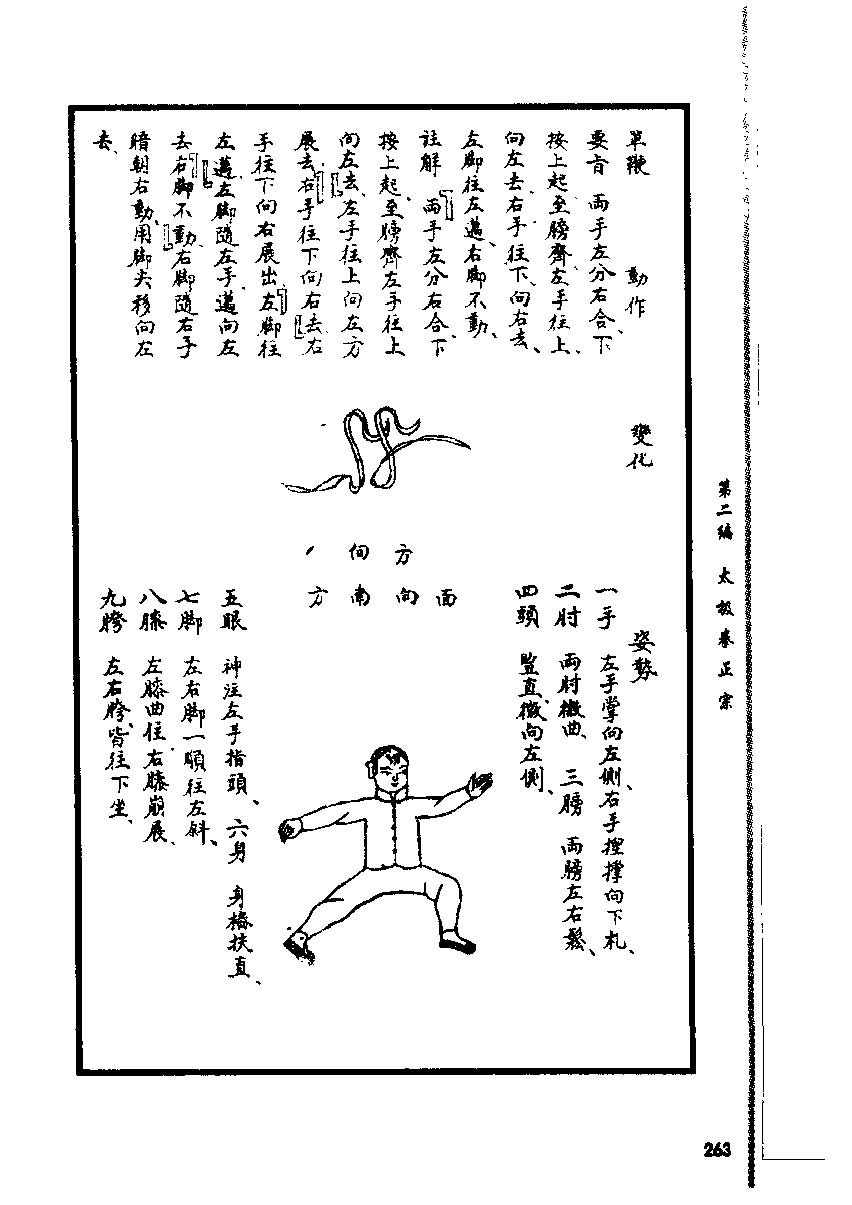 第二編 太極拳正宗
單鞭 動作
要旨 両手左分右合、下
按上起至膀齊、左手往上、
向左去、右手往下、向右去、
左脚往左邁、右脚不動、
註解 「両手左分右合、下
按上起、至膀齊左手往上
向左去」、左手往上向左方
展去、「右手往下向右去」、右
手往下向右展出、「左脚往
左邁」、左脚隨左手、邁向左
去、「右脚不動」、右脚隨右手
暗朝右動、用脚尖移向左
去、
變化
方向、
面向南方
姿勢
一手 左手掌向左側、右手捏撑向下札、
二肘 両肘微曲、 三膀 両膀左右鬆、
四頭 豎直、微向左側、
五眼 神注左手指頭、 六身 身樁扶直、
七脚 左右脚一順往左斜、
八膝 左膝曲住、右膝崩展、
九胯 左右胯、皆往下坐、
263